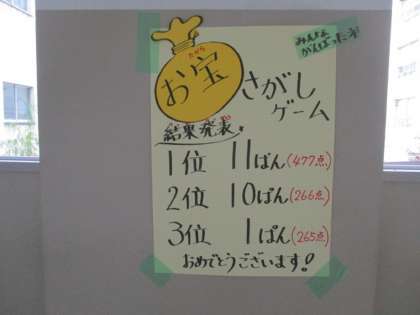 みんな
がんばったネ!
たから
お宝
さがし
ゲーム
結果発表!
1位 11ぱん(477点)
2位 10ぱん(266点)
3位 1ぱん(265点)
おめでとうございます!